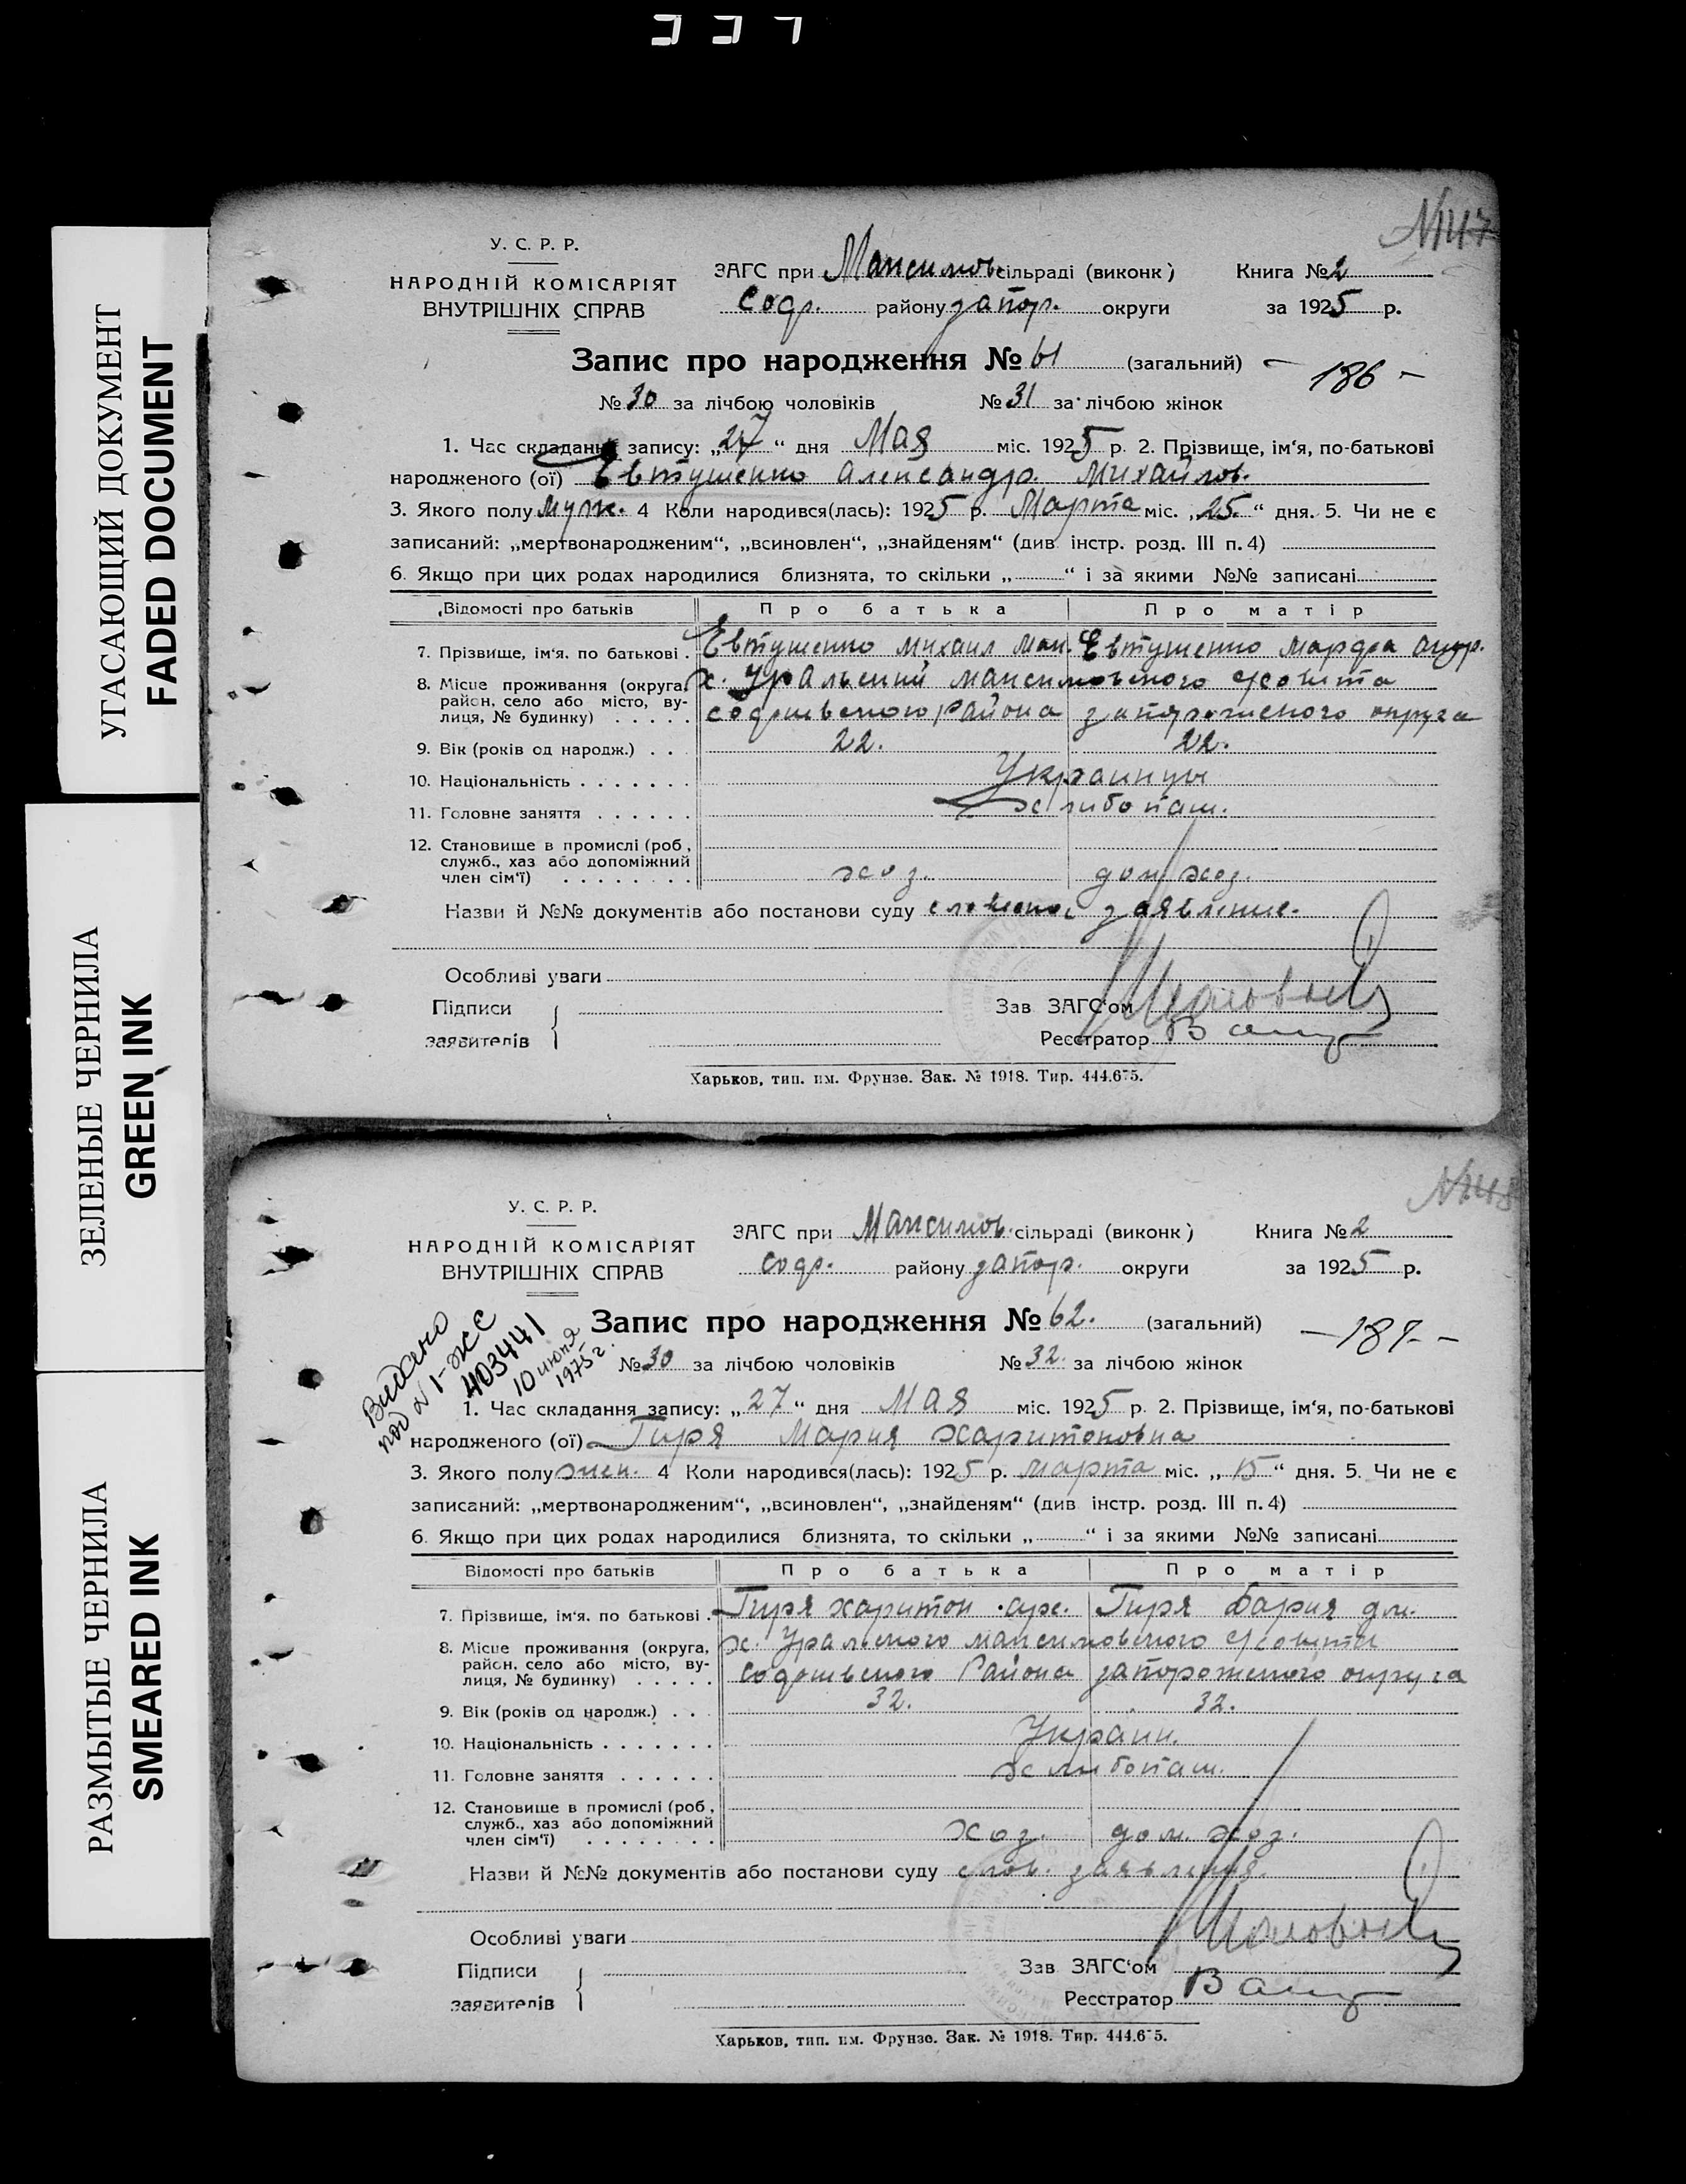 УГАСАЮЩИЙ ДОКУМЕНТ
FADED DOCUMENT
ЗЕЛЕНЫЕ ЧЕРНИЛА
GREEN INK
РАЗМЫТЫЕ ЧЕРНИЛА
SMEARED INK
№147
У. С. Р. Р.
НАРОДНІЙ КОМІСАРІЯТ
ВНУТРІШНІХ СПРАВ
ЗАГС при Максимов. сільраді (виконк) Книга № 2
Софр. району Запор. округи за 1925 р.
Запис про народження № 61 (загальний) — 186 —
№ 30 за лічбою чоловіків № 31 за лічбою жінок
1. Час складання запису: „27“ дня Мая міс. 1925 р. 2. Прізвище, ім‘я, по-батькові
народженого (ої) Евтушенко Александр Михайлов.
3. Якого полу муж. 4 Коли народився(лась): 1925 р. Марта міс. „25.“ дня. 5. Чи не є
записаний: „мертвонародженим“, „всиновлен“, „знайденям“ (див інстр. розд. III п. 4)
6. Якщо при цих родах народилися близнята, то скільки „ “ і за якими №№ записані
Відомості про батьків Про батька Про матір
7. Прізвище, ім‘я. по батькові . Евтушенко Михаил Мак. Евтушенко Марфа Андр.
8. Місце проживання (округа, район, село або місто, вулиця, № будинку) х. Уральский Максимовского с/совита
Софиевского района Запорожского округа
9. Вік (років од народж.) . . 22. 22.
10. Національність . . . . . . . Украинцы
11. Головне заняття . . . . . . хлибопаш.
12. Становище в промислі (роб, служб., хаз або допоміжний член сім‘ї) . . . . . . . . хоз. дом. хоз.
Назви й №№ документів або постанови суду словесное заявление.
Особливі уваги
Підписи
заявителів
Зав ЗАГС‘ом
Реєстратор
Харьков, тип. им. Фрунзе. Зак. № 1918. Тир. 444.675.
№148
У. С. Р. Р.
НАРОДНІЙ КОМІСАРІЯТ
ВНУТРІШНІХ СПРАВ
ЗАГС при Максимов. сільраді (виконк) Книга № 2
Софр. району Запор. округи за 1925 р.
Запис про народження № 62. (загальний) — 187. —
Видано
под № I-ЖС
403441
10 июня
1975 г.
№ 30 за лічбою чоловіків № 32. за лічбою жінок
1. Час складання запису: „27“ дня Мая міс. 1925 р. 2. Прізвище, ім‘я, по-батькові
народженого (ої) Гиря Мария Харитоновна
3. Якого полу жен. 4 Коли народився(лась): 1925 р. марта міс. „15“ дня. 5. Чи не є
записаний: „мертвонародженим“, „всиновлен“, „знайденям“ (див інстр. розд. III п. 4)
6. Якщо при цих родах народилися близнята, то скільки „ “ і за якими №№ записані
Відомості про батьків Про батька Про матір
7. Прізвище, ім‘я. по батькові . Гиря Харитон Гиря Дария дм.
8. Місце проживання (округа, район. село або місто, вулиця, № будинку) х. Уральского Максимовского с/совита
Софиевского Района Запорожского округа
9. Вік (років од народж.) . . 32. 32.
10. Національність . . . . . . . Украин.
11. Головне заняття . . . . . . хлибопаш.
12. Становище в промислі (роб, служб., хаз або допоміжний член сім‘ї) . . . . . . . . хоз. дом. хоз.
Назви й №№ документів або постанови суду слов. заявления.
Особливі уваги
Підписи
заявителів
Зав ЗАГС‘ом
Реєстратор
Харьков, тип. им. Фрунзе. Зак. № 1918. Тир. 444.675.